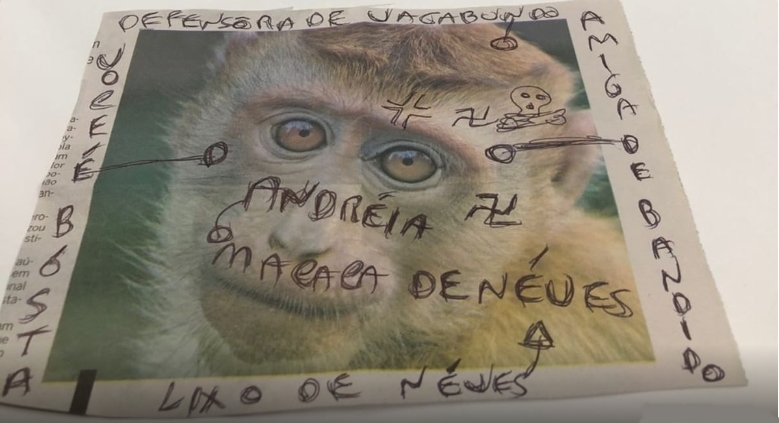 DEFENSORA DE VAGABUNDO
AMIGA DE BANDIDO
VOCE É BÓSTA
ANDRÉIA
MACACA DE NÉVES
LIXO DE NÉVES